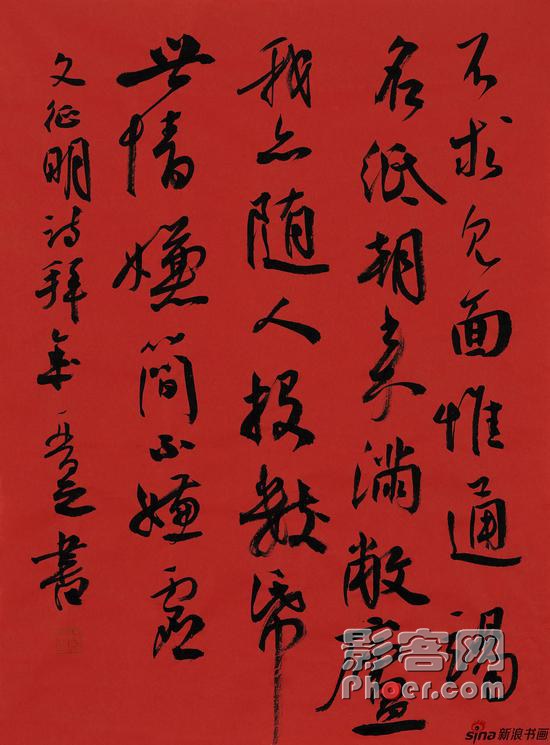 不求见面惟通谒
名纸朝来满敝廬
我亦随人投数帋
世情嫌簡不嫌虚
文征明诗拜年 書
影客网
Phoer.com
sina新浪书画